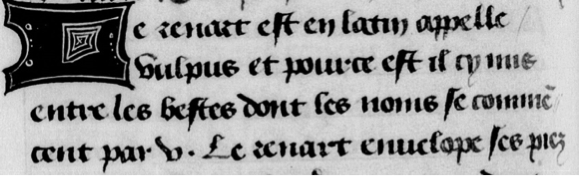 Le renart est en latin appelle
vulpus et pource est il cy mis
entre les bestes dont les noms se commē
cent par v. Le renart enuelope ses piez